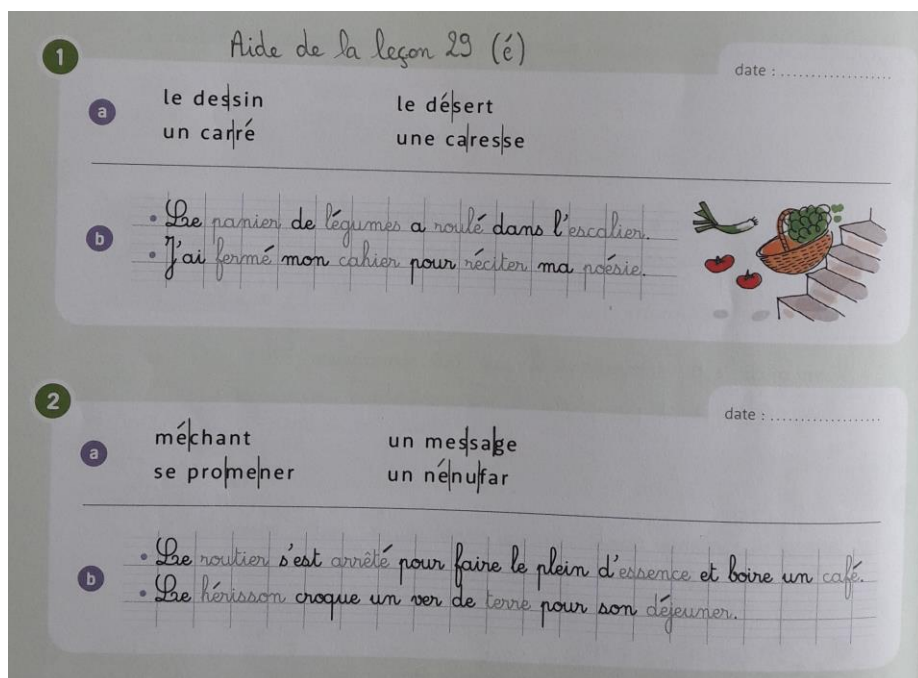 Aide de la leçon 29 (é)
1
date : ....................
a
le des|sin le dé|sert
un car|ré une ca|res|se
b
• Le panier de légumes a roulé dans l'escalier.
• J'ai fermé mon cahier pour réciter ma poésie.
2
date : ....................
a
mé|chant un mes|sa|ge
se pro|me|ner un né|nu|far
b
• Le routier s'est arrêté pour faire le plein d'essence et boire un café.
• Le hérisson croque un ver de terre pour son déjeuner.